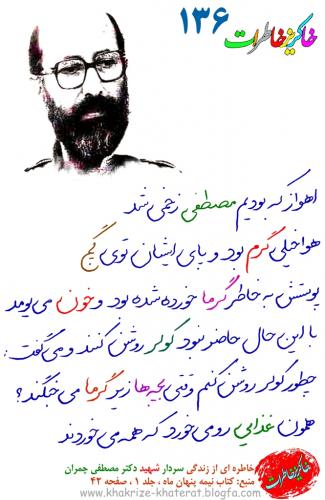 خاکریز خاطرات ۱۳۶
اهواز که بودیم مصطفی زخمی شد
هوا خیلی گرم بود و پای ایشان توی گچ
پوستش به خاطر گرما خورده شده بود و خون می یومد
با این حال حاضر نبود کولر روشن کنند و می گفت:
چطور کولر روشن کنم وقتی بچه ها زیر گرما می جنگند؟
همون غذایی رو می خورد که همه می خوردند
خاکریز خاطرات
خاطره ای از زندگی سردار شهید دکتر مصطفی چمران
منبع: کتاب نیمه پنهان ماه ، جلد ۱ ، صفحه ۴۳
www.khakrize-khaterat.blogfa.com